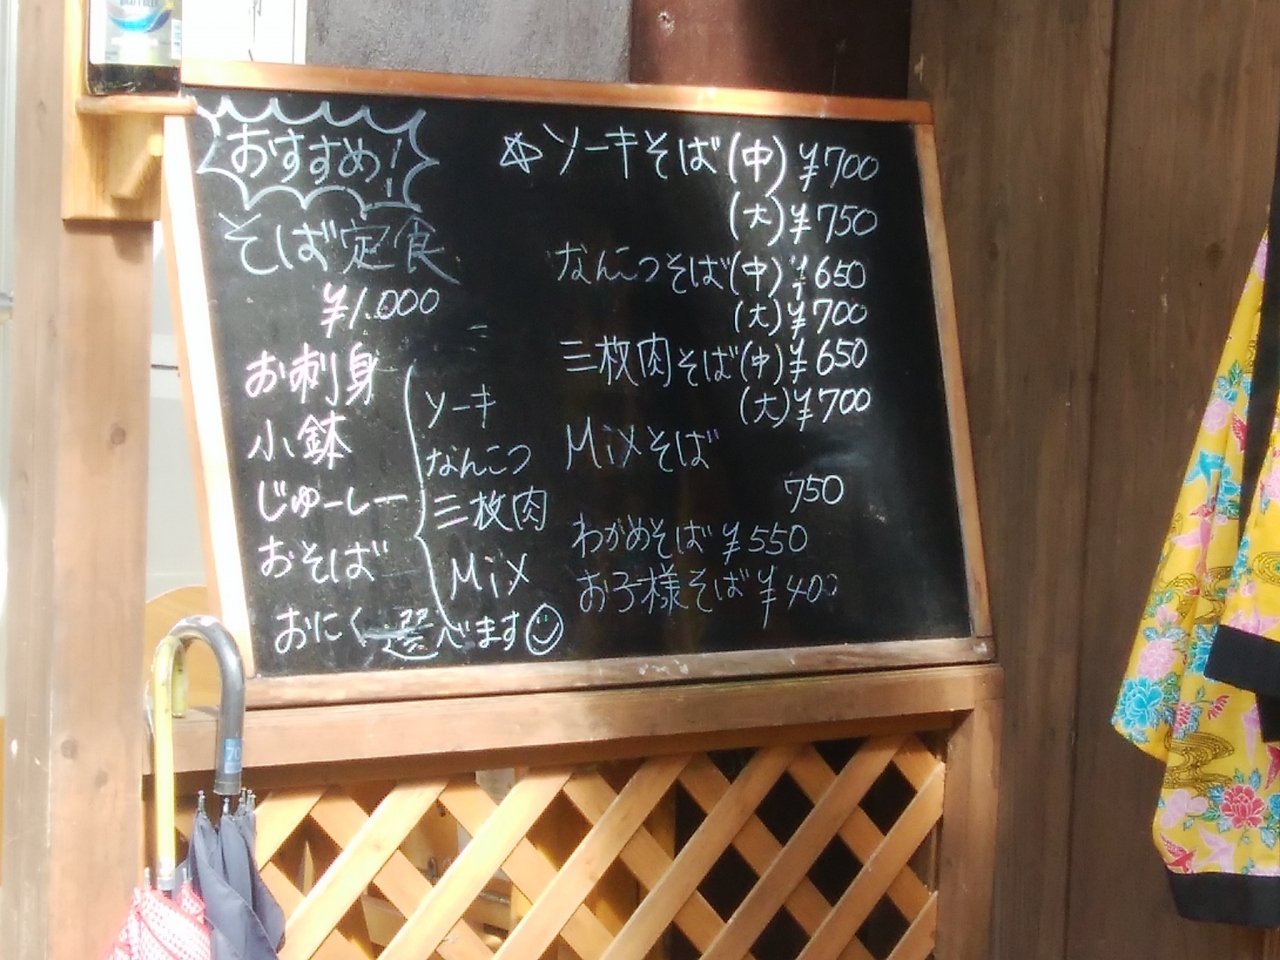 おすすめ!
そば定食
¥1.000
お刺身
小鉢
じゅーしー
おそば
ソーキ
なんこつ
三枚肉
Mix
おにく選べます
☆ソーキそば(中)¥700
(大)¥750
なんこつそば(中)¥650
(大)¥700
三枚肉そば(中)¥650
(大)¥700
Mixそば
750
わかめそば¥550
お子様そば¥400